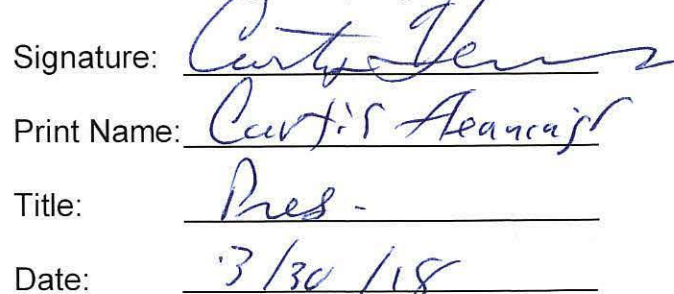 Signature:
Print Name: Curtis
Title: Pres.
Date: 3/30/18